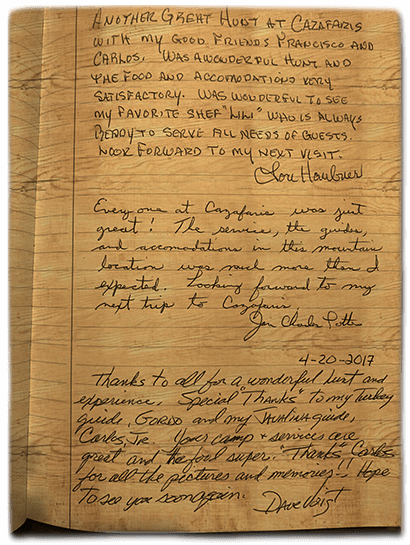 ANOTHER GREAT HUNT AT CAZAFARIS
WITH MY GOOD FRIENDS FRANCISCO AND
CARLOS. WAS A WONDERFUL HUNT AND
THE FOOD AND ACCOMODATIONS VERY
SATISFACTORY. WAS WONDERFUL TO SEE
MY FAVORITE SHEF "LILI" WHO IS ALWAYS
READY TO SERVE ALL NEEDS OF GUESTS.
LOOK FORWARD TO MY NEXT VISIT.
Everyone at Cazafaris was just
great! The service, the guides,
and accomodations in this mountain
location was much more than I
expected. Looking forward to my
next trip to Cazafaris.
Charles Potter
4-20-2017
Thanks to all for a wonderful hunt and
experience. Special "Thanks" to my turkey
guide, GORDO and my JAVALINA guide,
Carlos, Jr. Your camp + services are
great and the food super. "Thanks" Carlos
for all the pictures and memories!! Hope
to see you soon again.
Dave Voigt